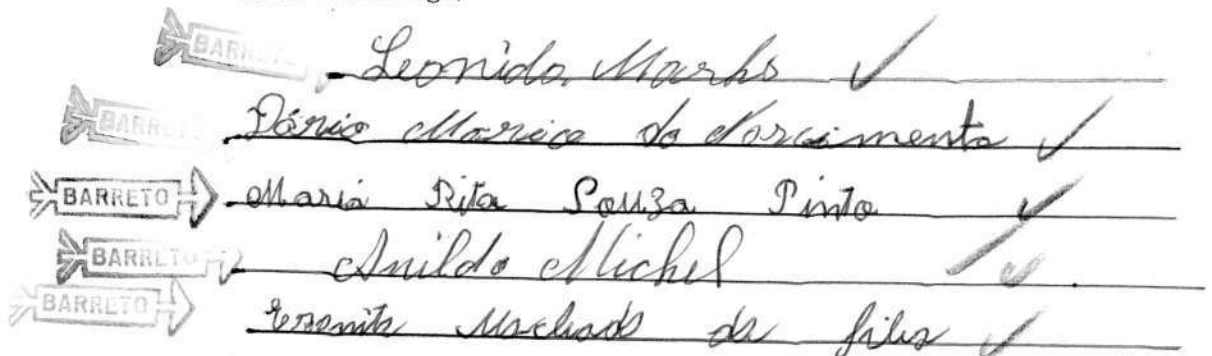 BARRETO Leonida Marks
BARRETO Dário do Nascimento
BARRETO Maria Rita Souza Pinto
BARRETO Anildo Michel
BARRETO Machado da